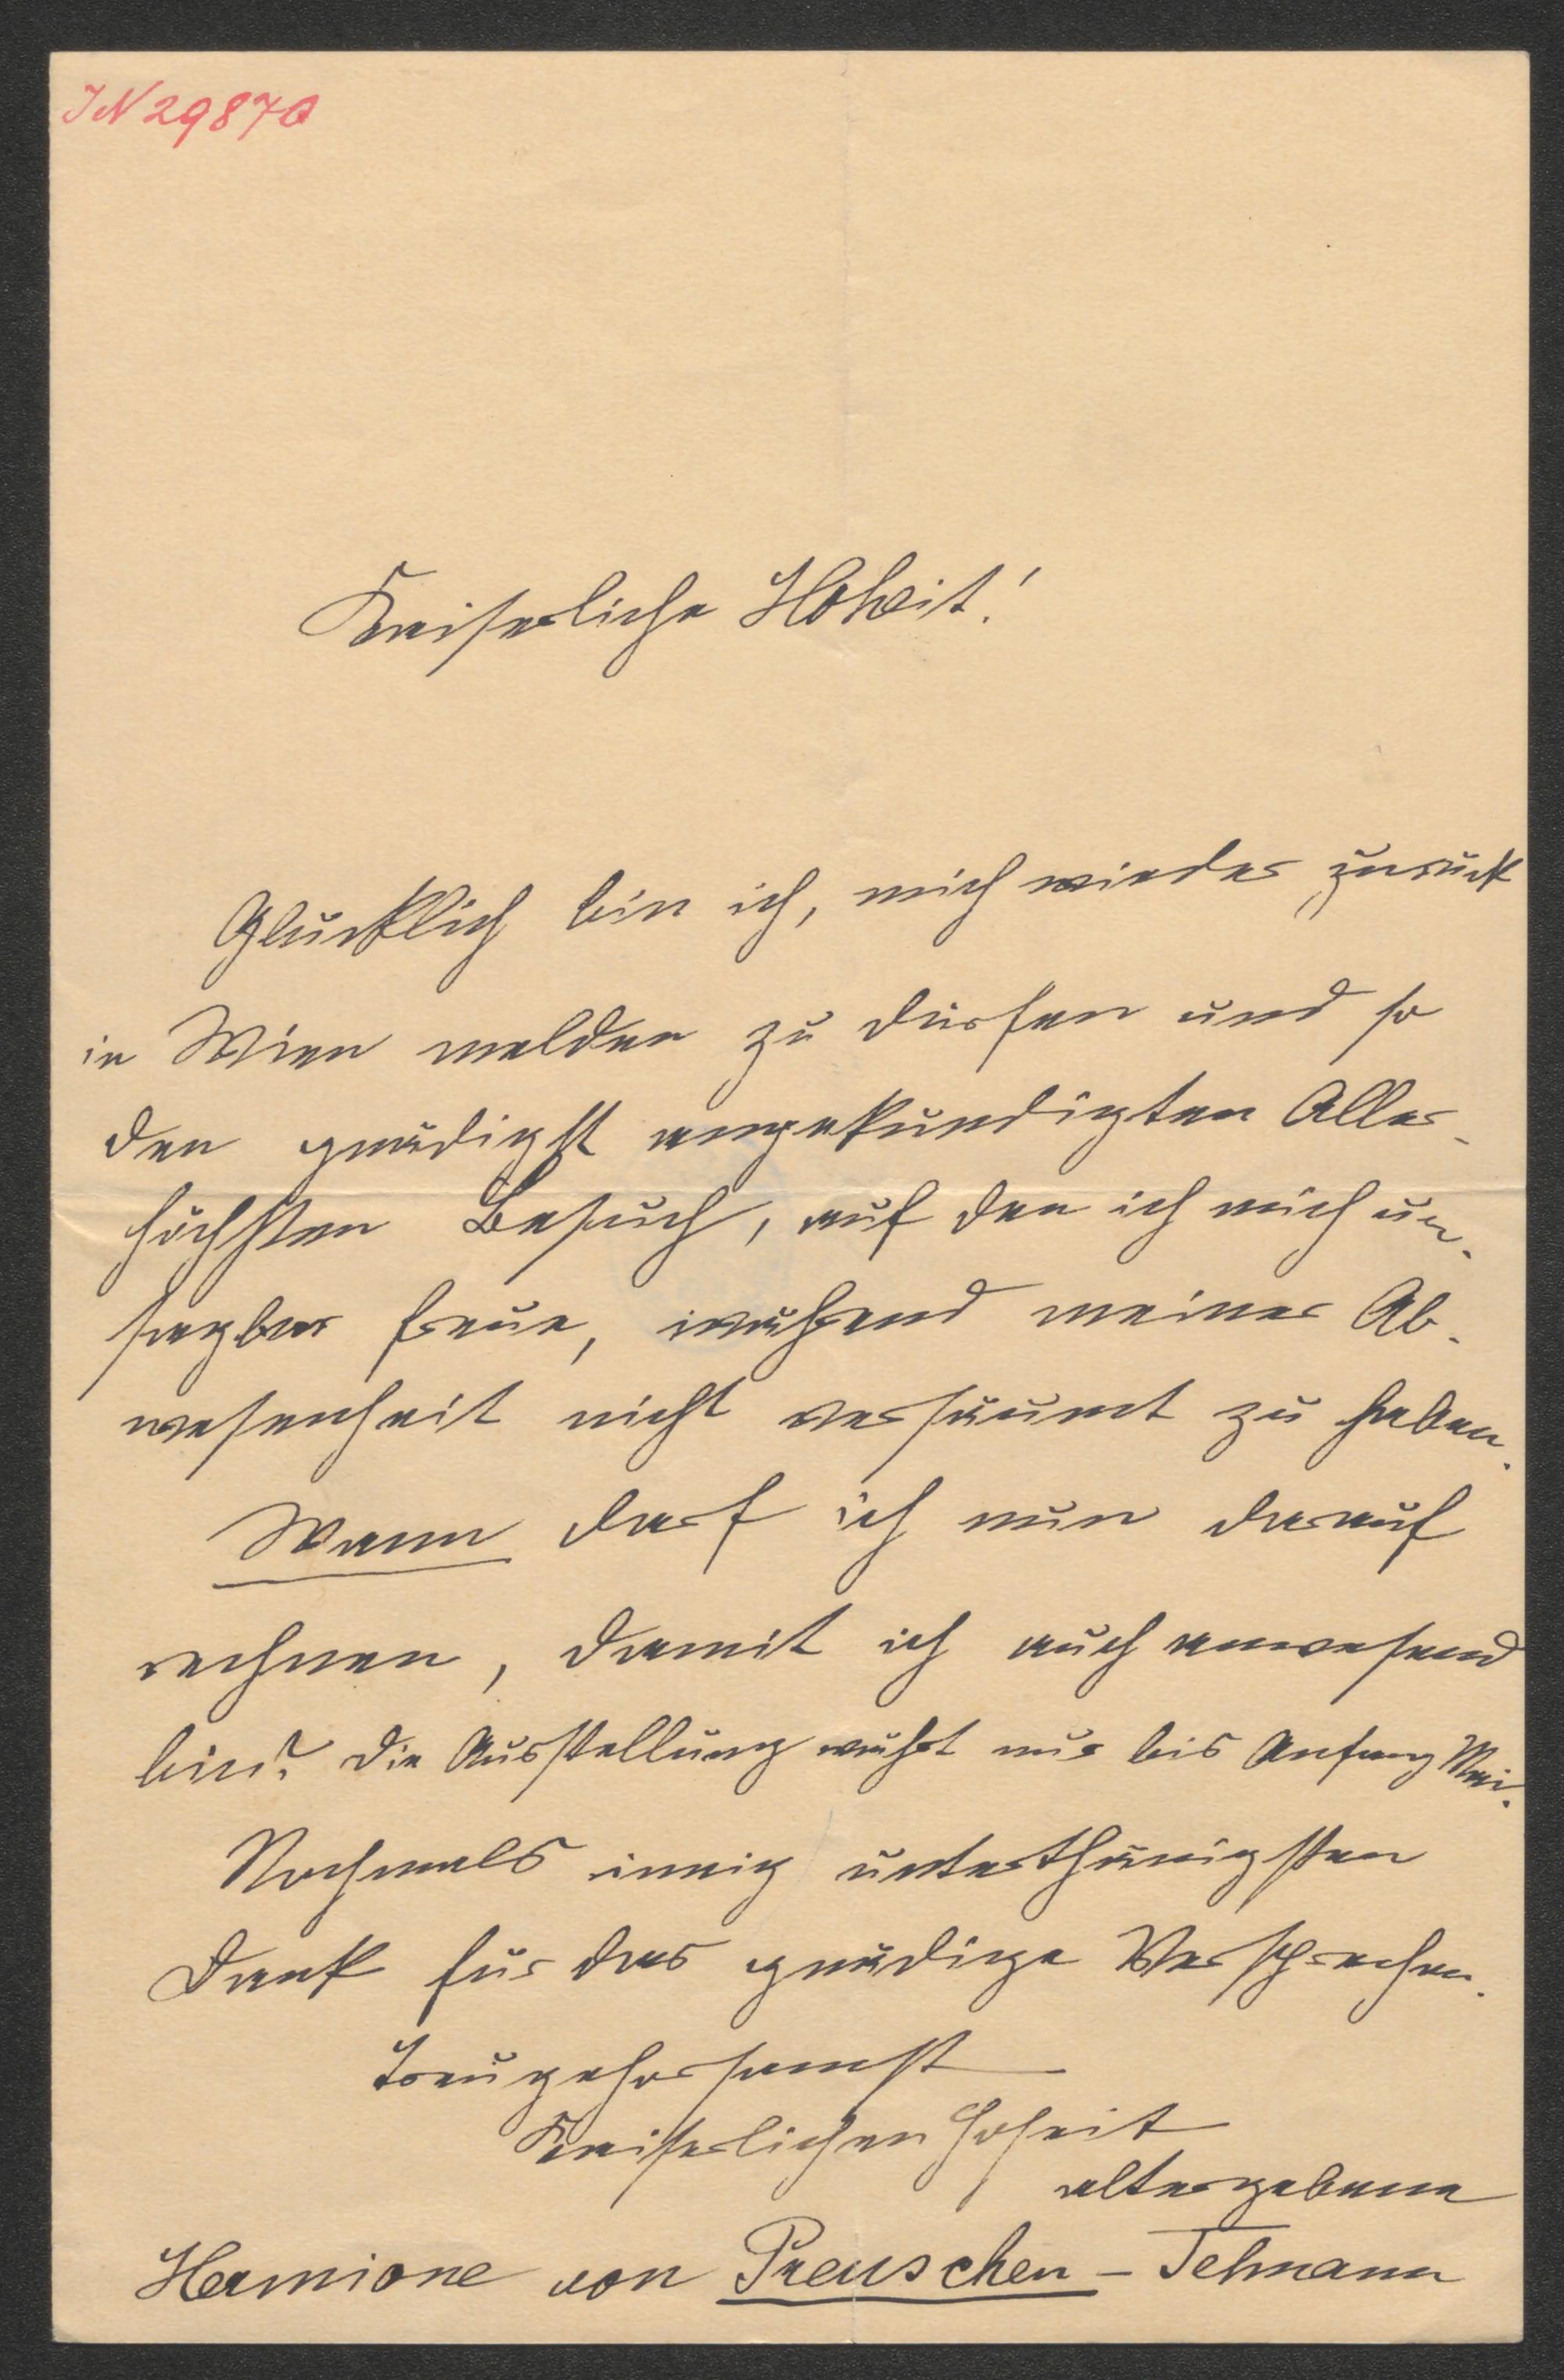 IN 29870
Kaiserliche Hoheit!
Glücklich bin ich, mich wieder zurück
in Wien melden zu dürfen und so
den gnädigst angekündigten Aller-
höchsten Besuch, auf den ich mich un-
sagbar freue, während meiner Ab-
wesenheit nicht versäumt zu haben.
Wann darf ich nun darauf
rechnen, damit ich auch anwesend
bin? Die Ausstellung währt nur bis Anfang Mai.
Nochmals innig unterthänigsten
Dank für das gnädige Versprechen.
Treugehorsamst
Kaiserlichen Hoheit
altergebene
Hermione von Preuschen-Telmann